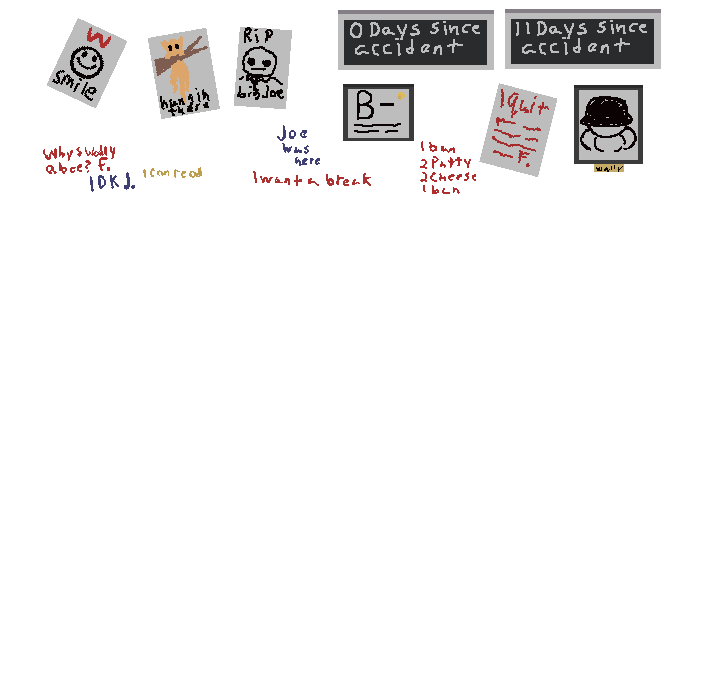 W
smile
hangin
there
RIP
big Joe
0 Days since
accident
11 Days since
accident
B-
I Quit
F.
wally
Why's Wally
a bee? F.
IDK J.
I can read
Joe
was
here
I want a break
1 bun
2 Patty
2 cheese
1 bun